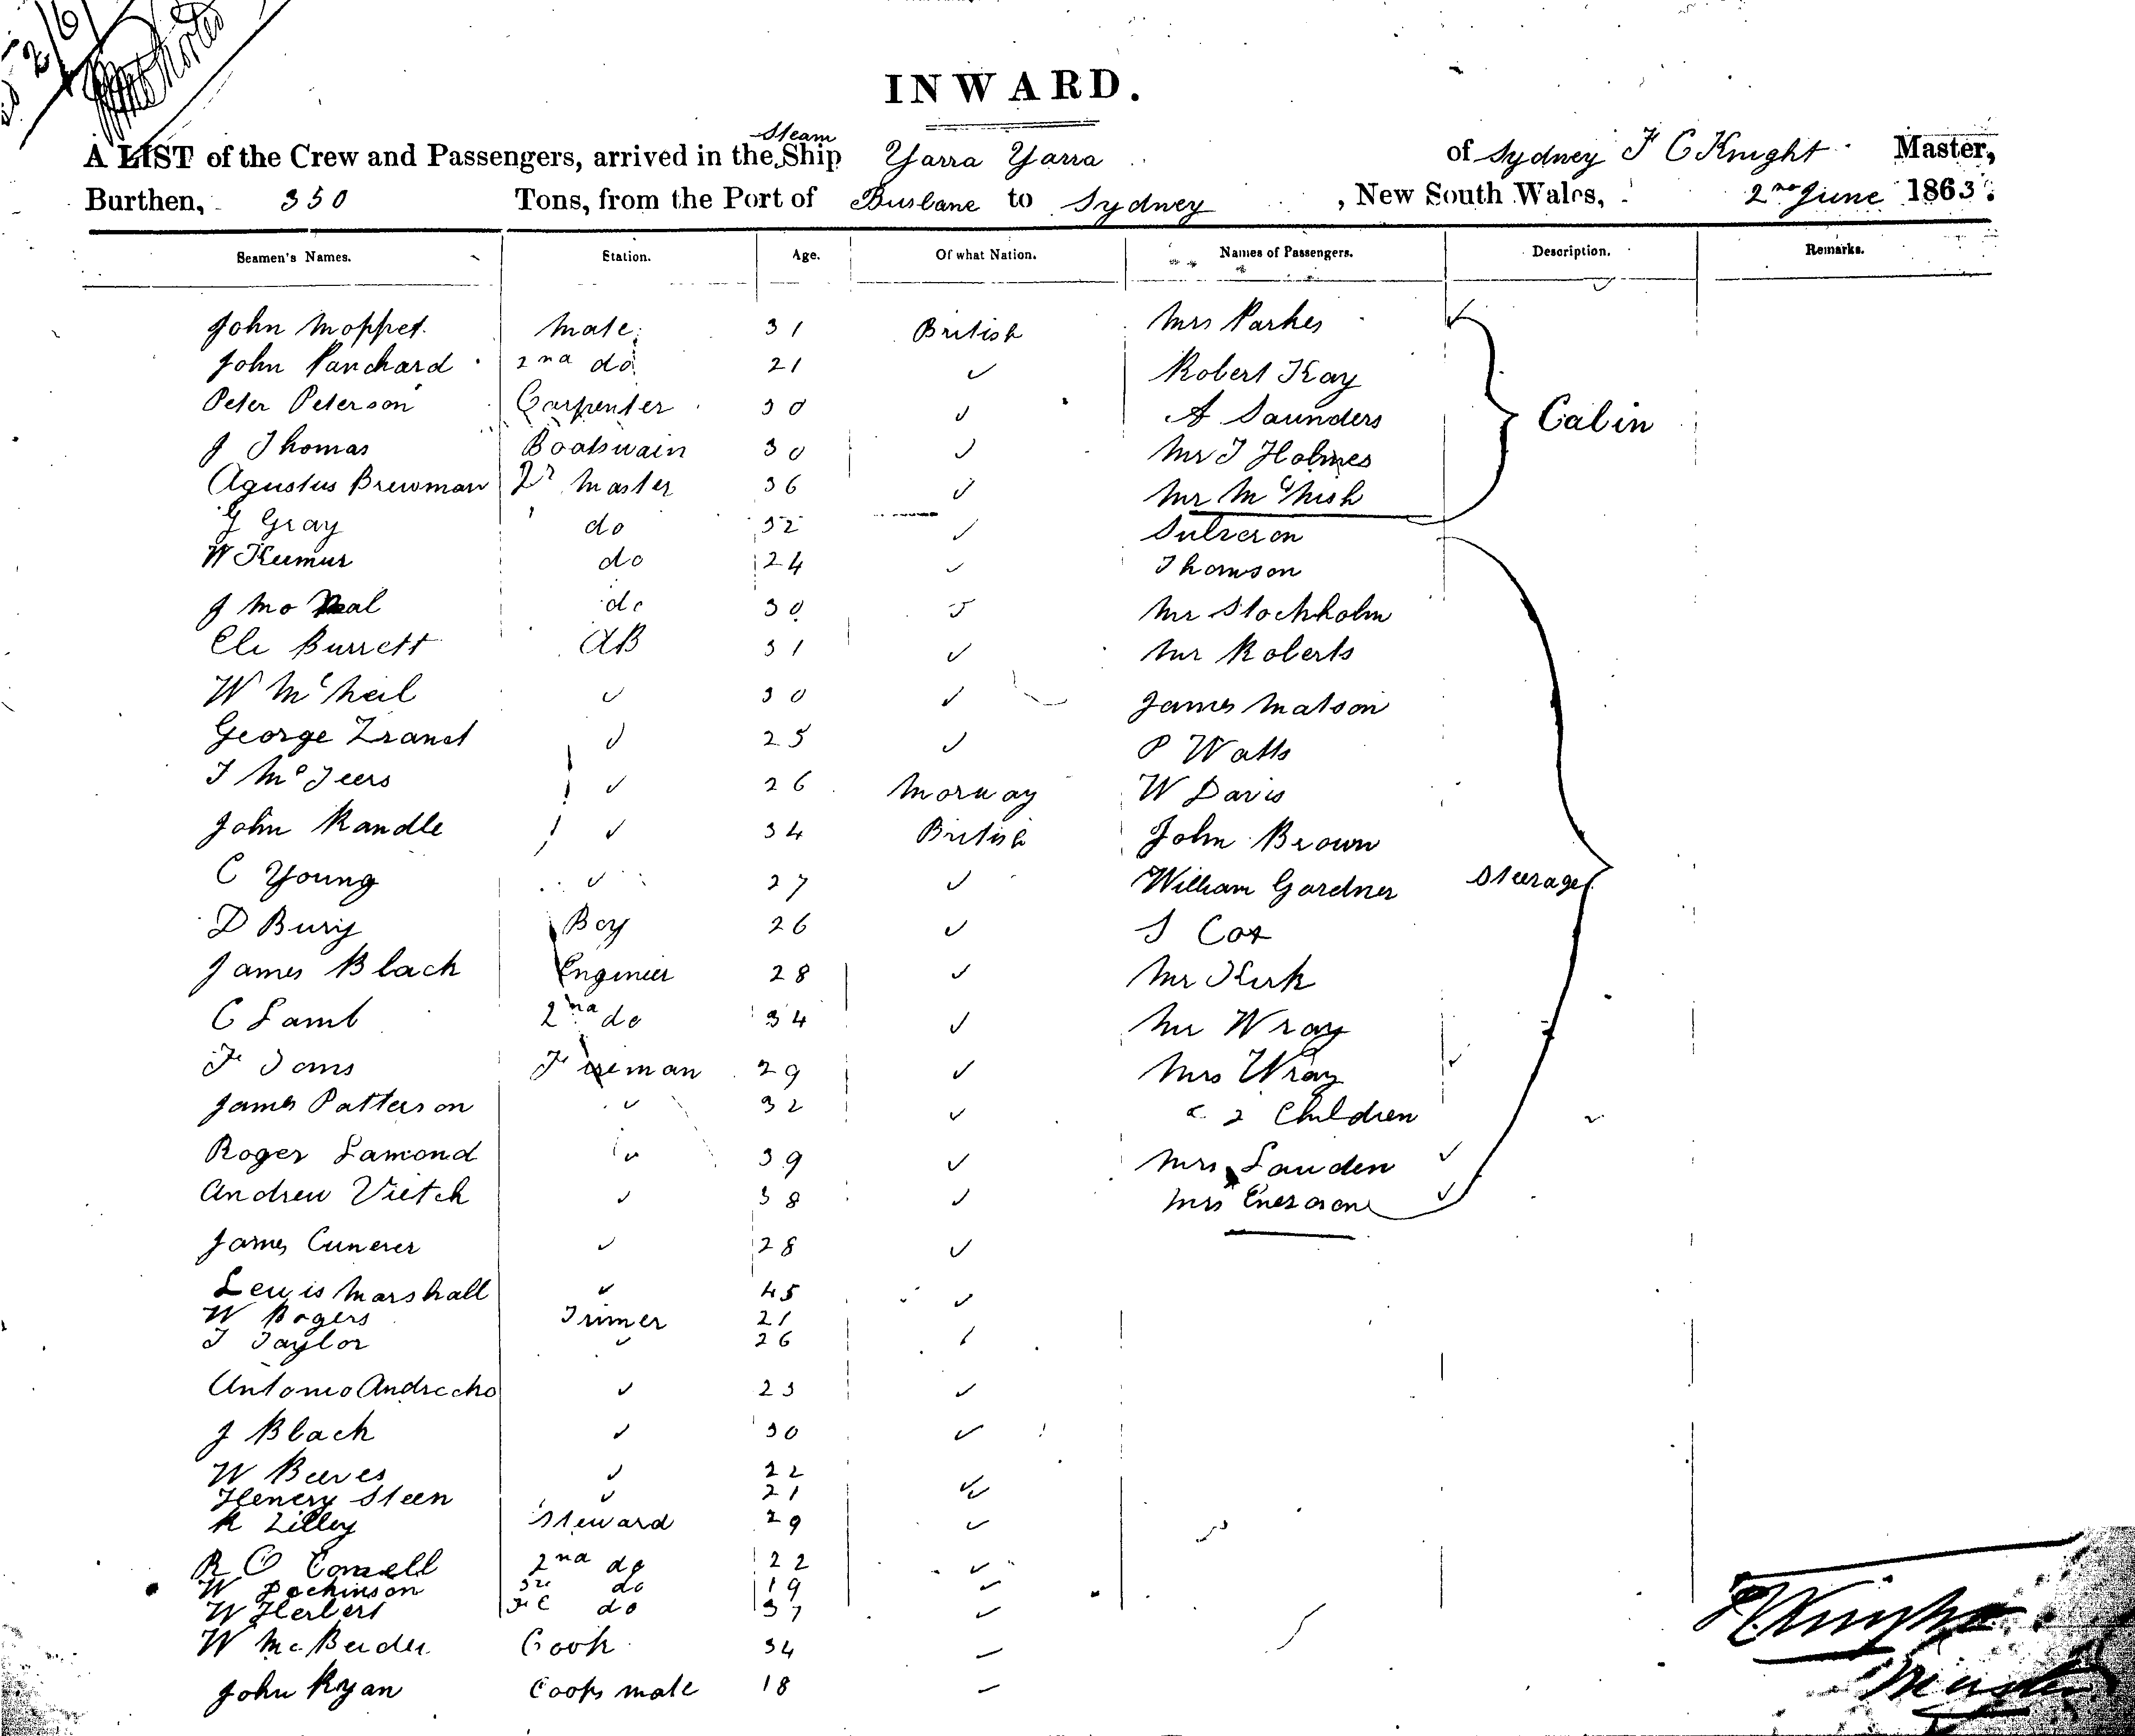 INWARD.
A LIST of the Crew and Passengers, arrived in the Steam Ship Yarra Yarra of Sydney F C Knight Master,
Burthen, 350 Tons, from the Port of Brisbane to Sydney, New South Wales, 2nd June 1863.
Seamen's Names. Station. Age. Of what Nation. Names of Passengers. Description. Remarks.
John Moppet. Mate 31 British Mrs Parkes
John Panchard 2nd do 21 ✓ Robert Kay
Peter Peterson Carpenter 30 ✓ A Saunders Cabin
J Thomas Boatswain 30 ✓ Mr J Holmes
Agustus Brewman Qr Master 36 ✓ Mr McNish
G Gray do 32 ✓
W do 24 ✓ Thomson
J do 30 ✓ Mr Stockholm
Eli Burrett AB 31 ✓ Mr Roberts
W McNeil ✓ 30 ✓ James Matson
George ✓ 25 ✓ P Watts
✓ 26 Norway W Davis
John Randle ✓ 34 British John Brown
C Young ✓ 27 ✓ William Gardner Steerage
D Bury Boy 26 ✓ S Cox
James Black Enginier 28 ✓ Mr Kirk
C Lamb 2nd do 34 ✓ Mr Wray
F Fireman 29 ✓ Mrs Wray
James Patterson ✓ 32 ✓ 2 Children
Roger Lamond ✓ 39 ✓ Mrs Lauden
Andrew Vietch ✓ 38 ✓ Mrs
James ✓ 28 ✓
Lewis Marshall ✓ 45 ✓
W Rogers Trimer 21
T Taylor ✓ 26
Antonio ✓ 23 ✓
J Black ✓ 30 ✓
W Beeves ✓ 22
Henery Steen ✓ 21 ✓
R Lilley Steward 29 ✓
R O Connell 2nd do 22 ✓
W do 19 ✓
W Herbert FC do 37 ✓
W Cook 34
John Ryan Cooks mate 18
F C Knight
Master